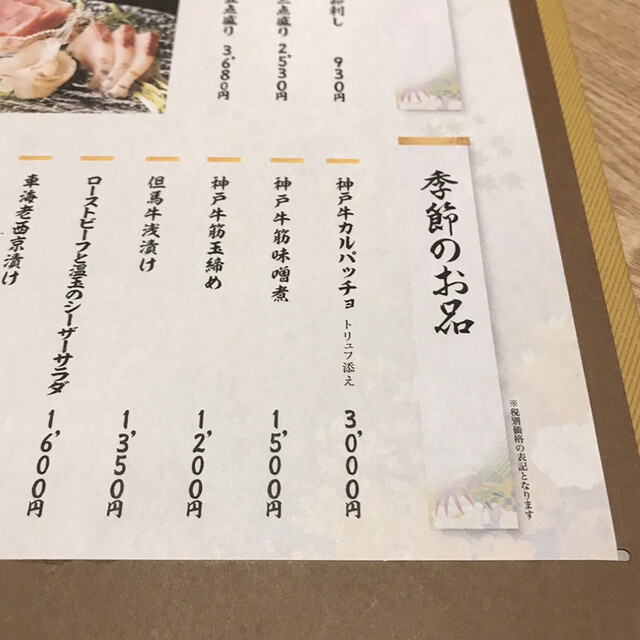 刺し 930円
点盛り 2,530円
点盛り 3,680円
季節のお品
※税別価格の表記となります
神戸牛カルパッチョ トリュフ添え 3,000円
神戸牛筋味噌煮 1,500円
神戸牛筋玉締め 1,200円
但馬牛浅漬け 1,350円
ローストビーフと温玉のシーザーサラダ 1,600円
車海老西京漬け